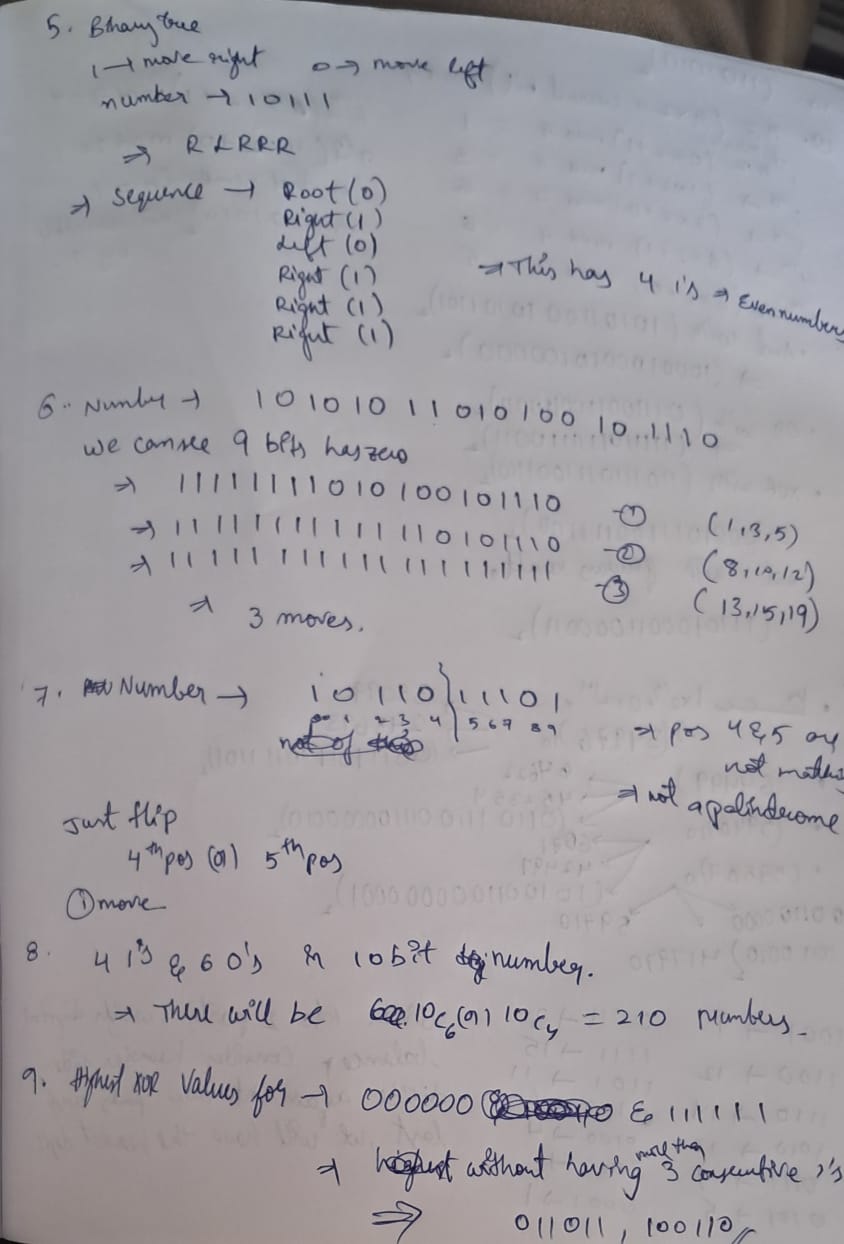 5. Binary tree
1 → move right 0 → move left.
number → 10111
⇒ R L R R R
⇒ Sequence → Root (0)
Right (1)
Left (0)
Right (1)
Right (1)
Right (1)
⇒ This has 4 1's ⇒ Even number
6. Number → 1010101101010010 1110
we can see 9 bits has zero
⇒ 11111111010100101110 - ① (1,3,5)
⇒ 11111111111110101110 - ② (8,10,12)
⇒ 11111111111111111111 - ③ (13,15,19)
⇒ 3 moves.
7. Number → 10110 11101
1 2 3 4 5 6 7 8 9
⇒ pos 4 & 5 are
not matching
⇒ not a palindrome
Just flip
4th pos (or) 5th pos
① move
8. 4 1's & 6 0's in 10 bit number.
⇒ There will be 10C6 (or) 10C4 = 210 numbers.
9. Highest XOR values for → 000000 & 111111
⇒ highest without having more than 3 consecutive 1's
⇒ 011011, 100110//